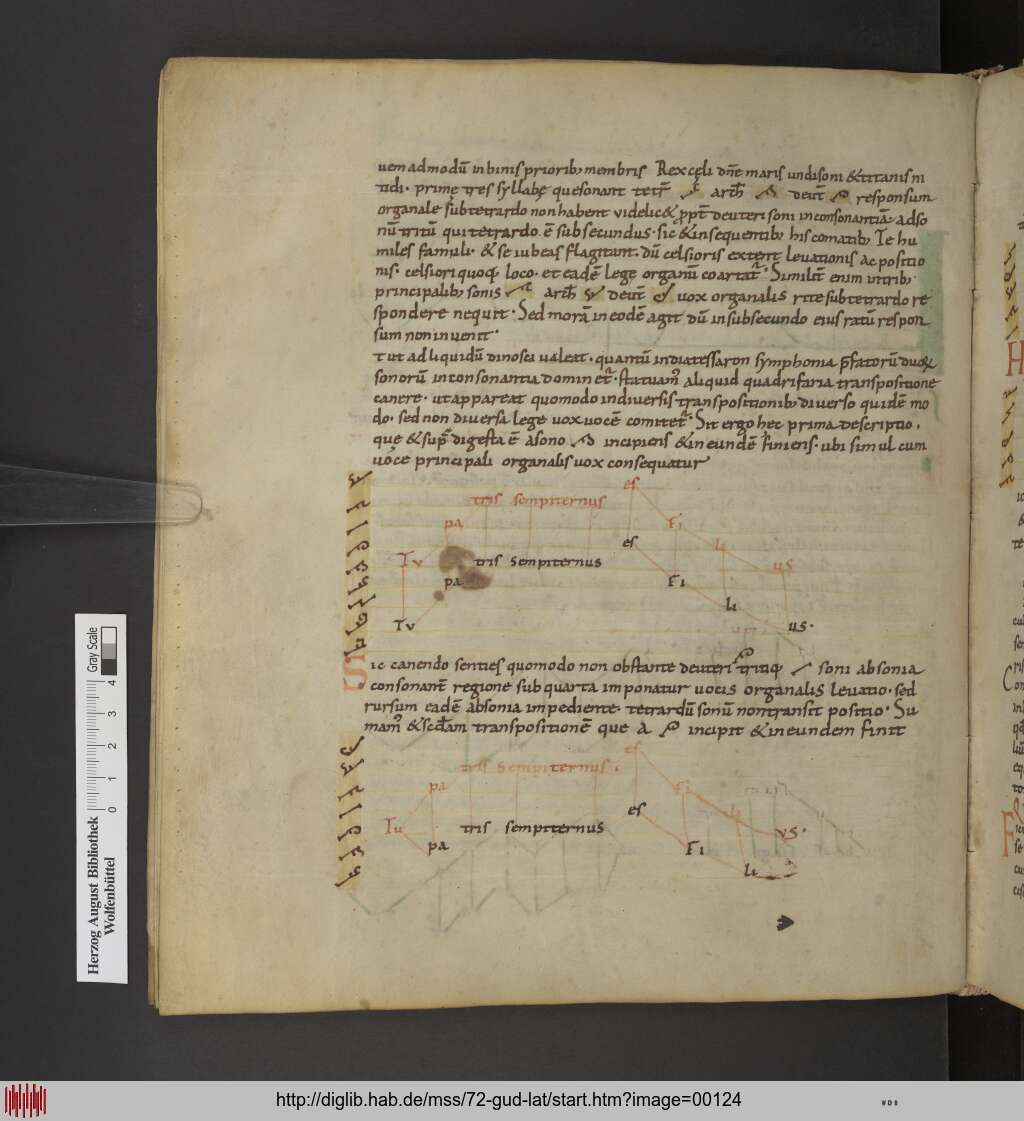 uem admodū in binis priorib; membris Rex cęli dn̄e maris undisoni & titanis ni
tidi. prime tres syllabę que sonant arch̄ deut̄ responsum
organale sub tetrardo non habent videlic& deuteri soni in consonantiā. adso
nū tritū qui tetrardo ē subsecundus. sic & in sequentib; his comatib; Te hu
miles famuli. & se iubeas flagitant. dū celsioris extent levationis ac positio
nis. celsiori quoq; loco. et eadē lege organū coartat̄. Similit̄ enim utrib;
principalib; sonis arch̄ deut̄ vox organalis rite sub tetrardo re
spondere nequit. Sed morā in eodē agit dū in subsecundo eius ratū respon
sum non invenit.
t ut ad liquidū dinosci valeat. quantū in diatessaron symphonia
sonorū inconsonantia domin& statuam̄ aliquid quadrifaria transpositione
canere. ut appareat quomodo in diversis transpositionib; diverso quidē mo
do. sed non diversa lege vox vocē comitet̄. Sit ergo hec prima descriptio.
quę & sup̄ digesta ē a sono incipiens & in eundē finiens. ubi simul cum
voce principali organalis vox consequatur
es
tris sempiternus
pa Fi
es li
Tu tris sempiternus us
pa Fi
li
Tu us.
Sic canendo senties quomodo non obstante deuteri tritiq; soni absonia
consonant̄ regione sub quarta imponatur vocis organalis levatio. sed
rursum eadē absonia impediente. tetrardū sonū non transit positio. Su
mam̄ & scdam transpositionē que a incipit & in eundem finit
es
tris sempiternus.
pa Fi
es li
Tu tris sempiternus us.
pa Fi
li
Herzog August Bibliothek
Wolfenbüttel
0 1 2 3 4
Gray Scale
http://diglib.hab.de/mss/72-gud-lat/start.htm?image=00124